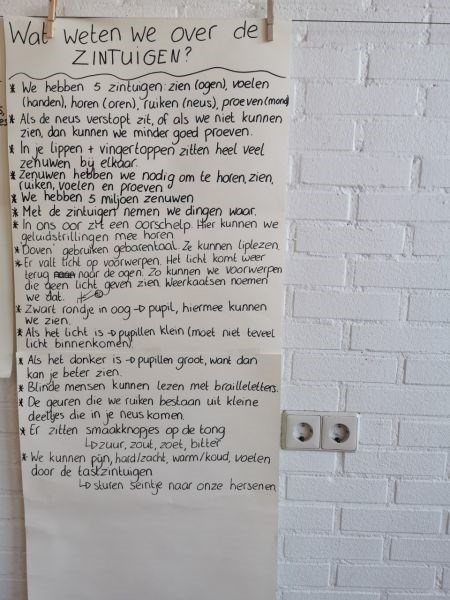 Wat weten we over de
ZINTUIGEN?
* We hebben 5 zintuigen: zien (ogen), voelen
(handen), horen (oren), ruiken (neus), proeven (mond)
* Als de neus verstopt zit, of als we niet kunnen
zien, dan kunnen we minder goed proeven.
* In je lippen + vingertoppen zitten heel veel
zenuwen bij elkaar.
* Zenuwen hebben we nodig om te horen, zien,
ruiken, voelen en proeven
* We hebben 5 miljoen zenuwen
* Met de zintuigen nemen we dingen waar.
* In ons oor zit een oorschelp. Hier kunnen we
geluidstrillingen mee horen.
* Doven gebruiken gebarentaal. Ze kunnen liplezen.
* Er valt licht op voorwerpen. Het licht komt weer
terug naar de ogen. Zo kunnen we voorwerpen
die geen licht geven zien. Weerkaatsen noemen
we dat.
* Zwart rondje in oog → pupil, hiermee kunnen
we zien.
* Als het licht is → pupillen klein (moet niet teveel
licht binnenkomen).
* Als het donker is → pupillen groot, want dan
kan je beter zien.
* Blinde mensen kunnen lezen met brailleletters.
* De geuren die we ruiken bestaan uit kleine
deeltjes die in je neus komen.
* Er zitten smaakknopjes op de tong
↳ zuur, zout, zoet, bitter
* We kunnen pijn, hard/zacht, warm/koud, voelen
door de tastzintuigen
↳ sturen seintje naar onze hersenen